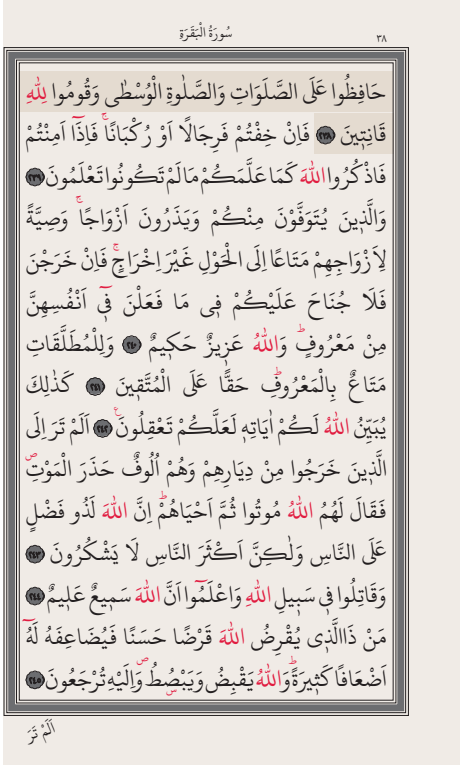 سُورَةُ الْبَقَرَةِ
٣٨
حَافِظُوا عَلَى الصَّلَوَاتِ وَالصَّلٰوةِ الْوُسْطٰى وَقُومُوا لِلّٰهِ
قَانِت۪ينَ ﴿٢٣٨﴾ فَاِنْ خِفْتُمْ فَرِجَالًا اَوْ رُكْبَانًاۚ فَاِذَٓا اَمِنْتُمْ
فَاذْكُرُوا اللّٰهَ كَمَا عَلَّمَكُمْ مَا لَمْ تَكُونُوا تَعْلَمُونَ ﴿٢٣٩﴾
وَالَّذ۪ينَ يُتَوَفَّوْنَ مِنْكُمْ وَيَذَرُونَ اَزْوَاجًاۚ وَصِيَّةً
لِاَزْوَاجِهِمْ مَتَاعًا اِلَى الْحَوْلِ غَيْرَ اِخْرَاجٍۚ فَاِنْ خَرَجْنَ
فَلَا جُنَاحَ عَلَيْكُمْ ف۪ى مَا فَعَلْنَ ف۪ٓى اَنْفُسِهِنَّ
مِنْ مَعْرُوفٍۜ وَاللّٰهُ عَز۪يزٌ حَك۪يمٌ ﴿٢٤٠﴾ وَلِلْمُطَلَّقَاتِ
مَتَاعٌ بِالْمَعْرُوفِۜ حَقًّا عَلَى الْمُتَّق۪ينَ ﴿٢٤١﴾ كَذٰلِكَ
يُبَيِّنُ اللّٰهُ لَكُمْ اٰيَاتِه۪ لَعَلَّكُمْ تَعْقِلُونَ۟ ﴿٢٤٢﴾ اَلَمْ تَرَ اِلَى
الَّذ۪ينَ خَرَجُوا مِنْ دِيَارِهِمْ وَهُمْ اُلُوفٌ حَذَرَ الْمَوْتِۖ
فَقَالَ لَهُمُ اللّٰهُ مُوتُوا ثُمَّ اَحْيَاهُمْۜ اِنَّ اللّٰهَ لَذُو فَضْلٍ
عَلَى النَّاسِ وَلٰكِنَّ اَكْثَرَ النَّاسِ لَا يَشْكُرُونَ ﴿٢٤٣﴾
وَقَاتِلُوا ف۪ى سَب۪يلِ اللّٰهِ وَاعْلَمُٓوا اَنَّ اللّٰهَ سَم۪يعٌ عَل۪يمٌ ﴿٢٤٤﴾
مَنْ ذَا الَّذ۪ى يُقْرِضُ اللّٰهَ قَرْضًا حَسَنًا فَيُضَاعِفَهُ لَهُٓ
اَضْعَافًا كَث۪يرَةًۜ وَاللّٰهُ يَقْبِضُ وَيَبْصُۣطُۖ وَاِلَيْهِ تُرْجَعُونَ ﴿٢٤٥﴾
اَلَمْ تَرَ